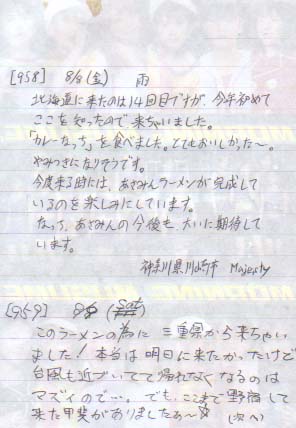 [958] 8/8(金) 雨
北海道に来たのは14回目ですが、今年初めて
ここを知ったので来ちゃいました。
「カレーなっち」を食べました。とてもおいしかった〜。
やみつきになりそうです。
今度来る時には、あさみんラーメンが完成して
いるのを楽しみにしています。
なっち、あさみんの今後も、大いに期待して
います。
神奈川県川崎市 Majesty
[959] 8/9 (Sat)
このラーメンの為に三重県から来ちゃい
ました! 本当は明日に来たかったけど
台風も近づいてて帰れなくなるのは
マズイので…。でも、ここまで野宿して
来た甲斐がありましたぁ〜☆ (次へ)